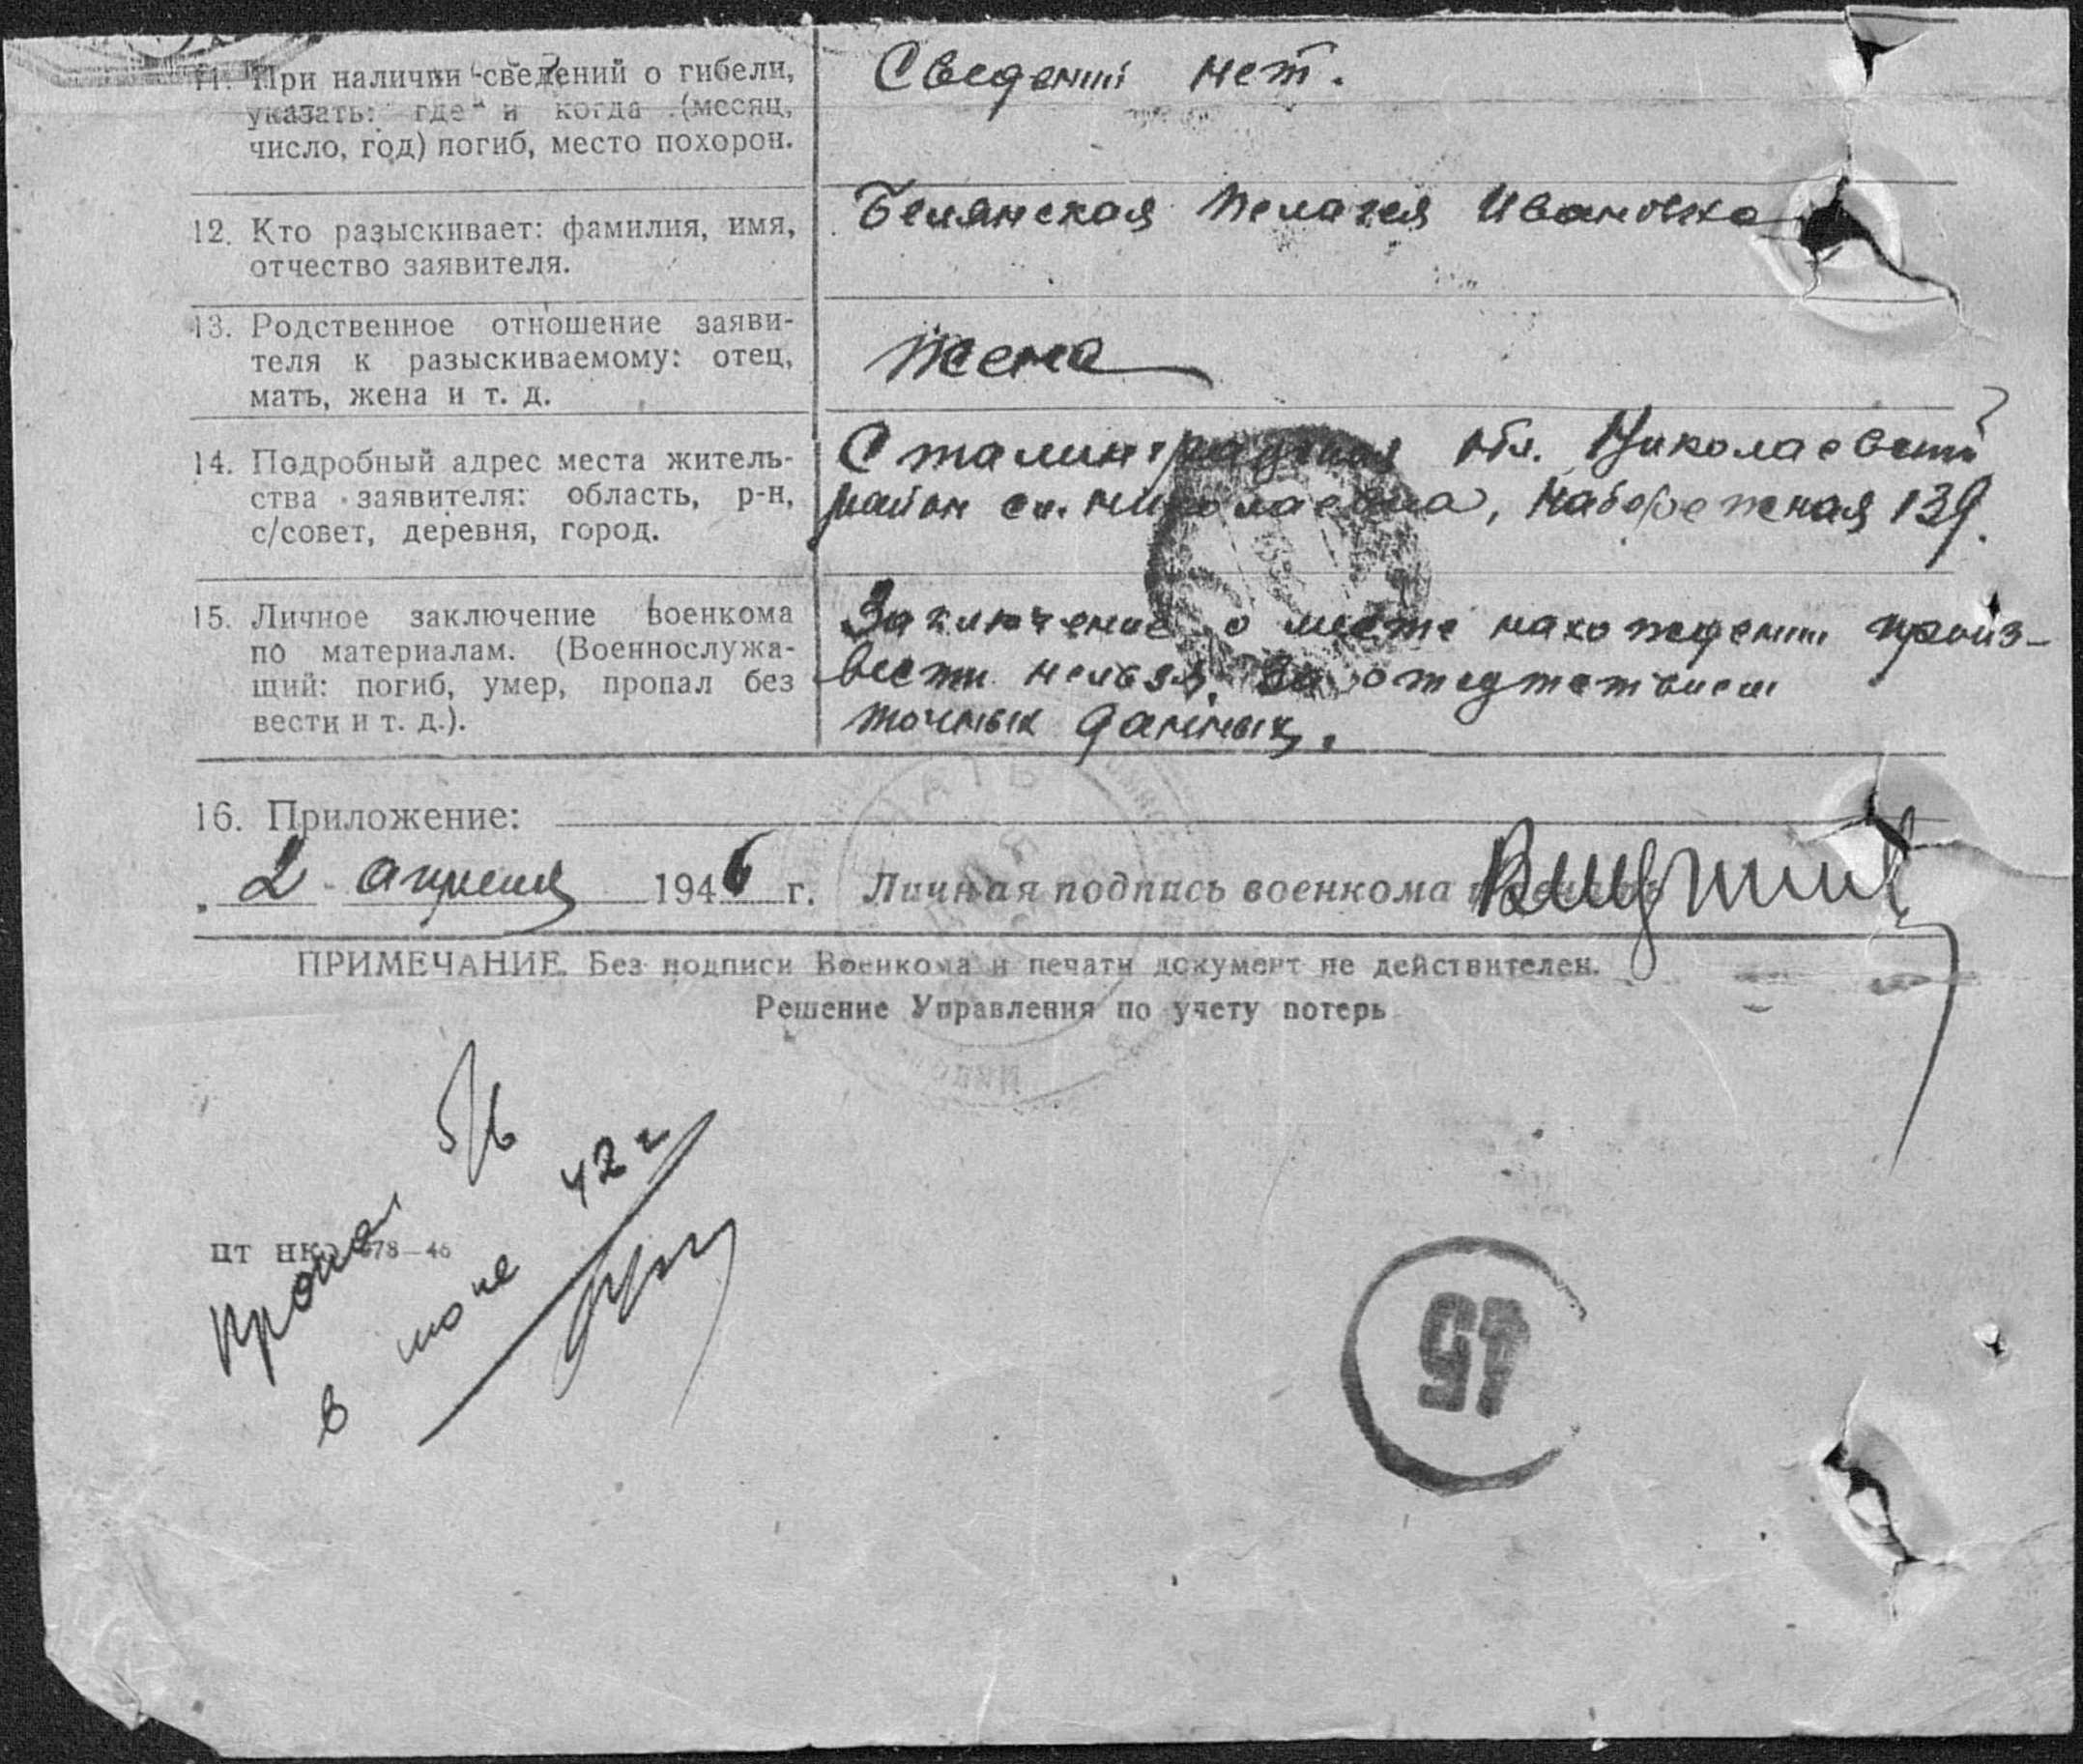 11. При наличии сведений о гибели,
указать: где и когда (месяц,
число, год) погиб, место похорон.
Сведений нет.
12. Кто разыскивает: фамилия, имя,
отчество заявителя.
Белянская Пелагея Ивановна
13. Родственное отношение заяви-
теля к разыскиваемому: отец,
мать, жена и т. д.
Жена
14. Подробный адрес места житель-
ства заявителя: область, р-н,
с/совет, деревня, город.
Сталинградская обл. Николаевский
район сл. Николаевка, Набережная 139.
15. Личное заключение военкома
по материалам. (Военнослужа-
щий: погиб, умер, пропал без
вести и т. д.).
Заключение о месте нахождении произ-
вести нельзя, за отсутствием
точных данных.
16. Приложение:
2 апреля 1946 г. Личная подпись военкома
ПРИМЕЧАНИЕ. Без подписи Военкома и печати документ не действителен.
Решение Управления по учету потерь
Пропал б/в
в июле 42 г
цт нко 678—46
45